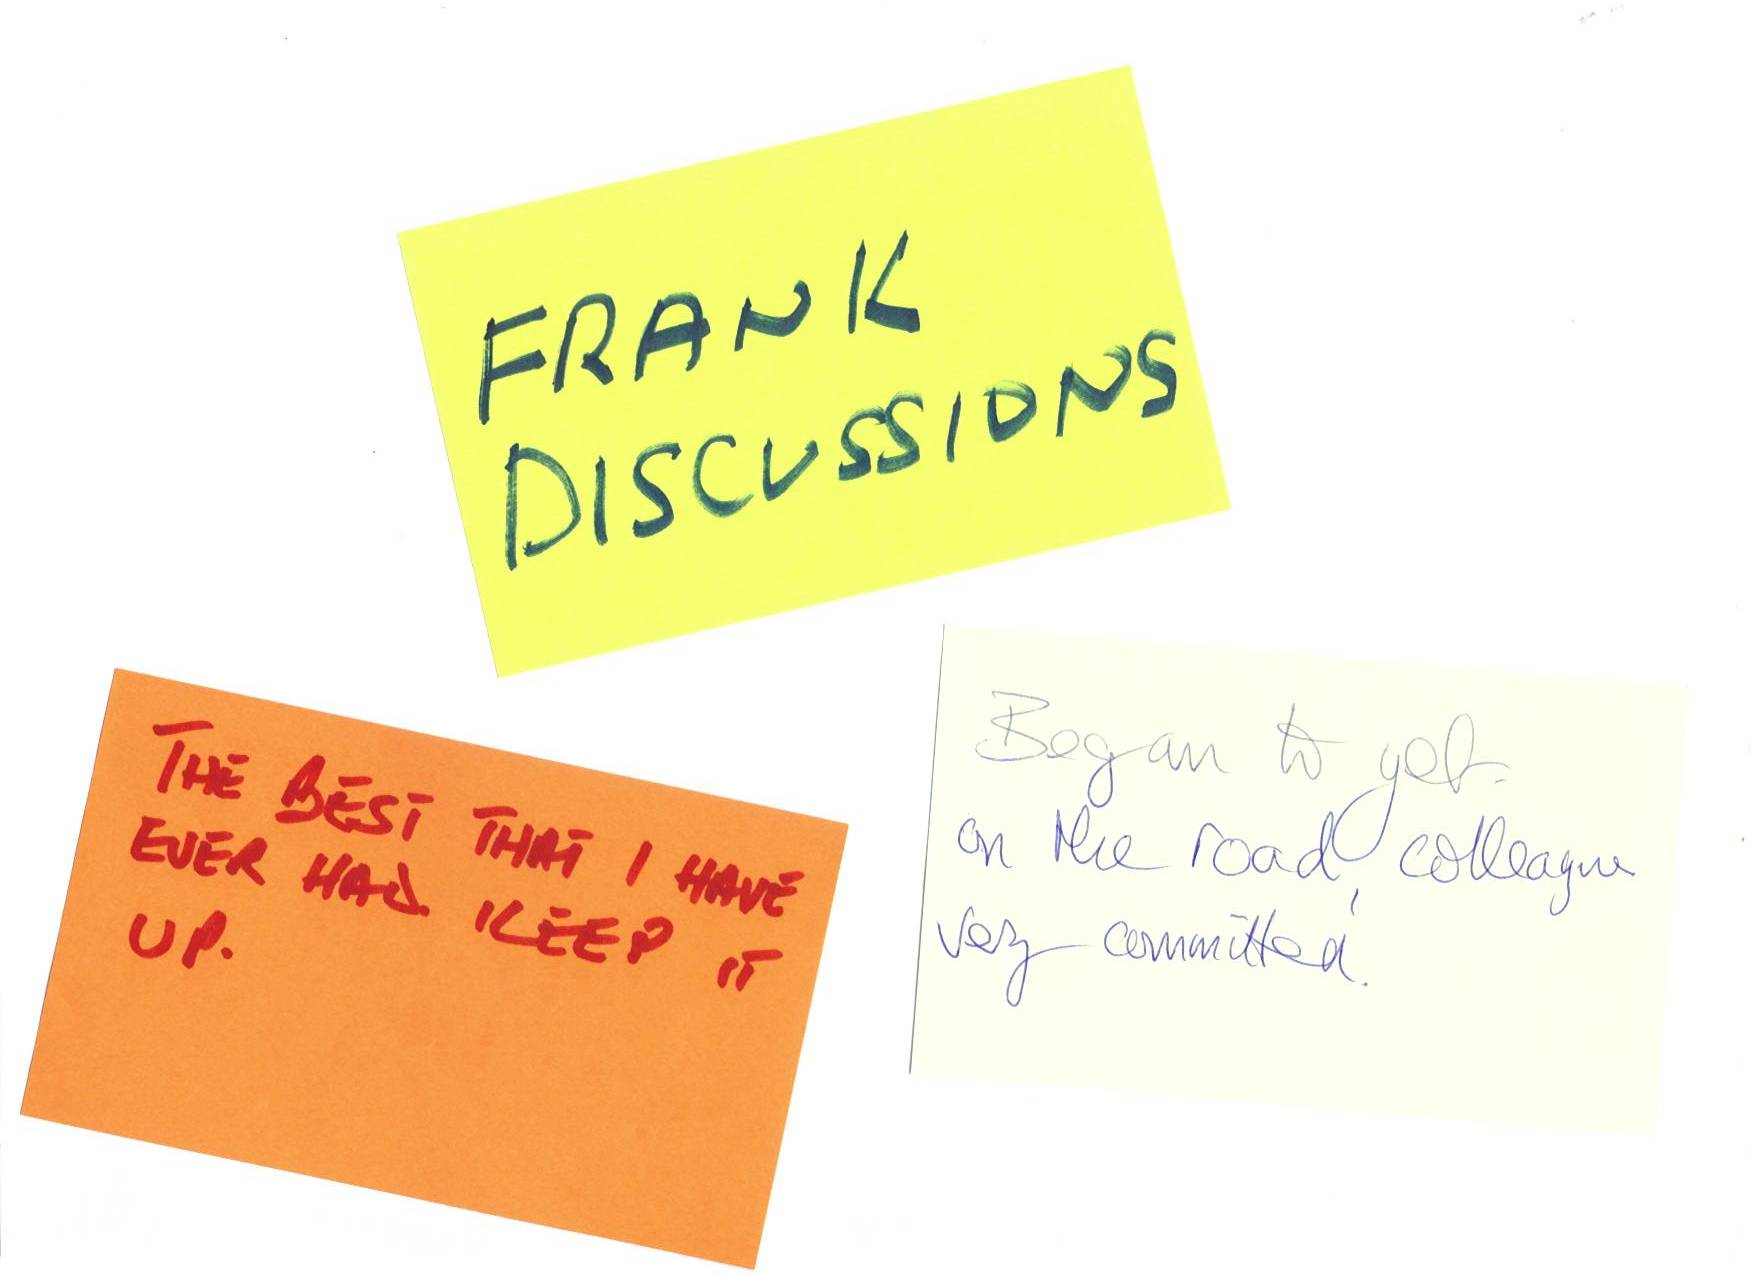 FRANK
DISCUSSIONS
THE BEST THAT I HAVE
EVER HAD. KEEP IT
UP.
Began to get
on the road, colleague
very committed.